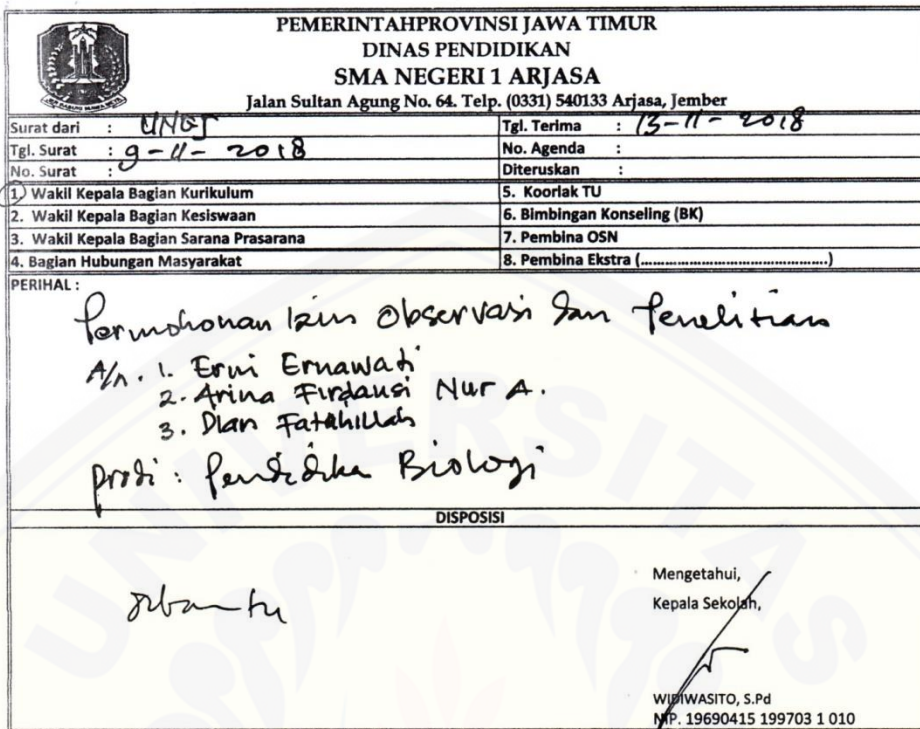 PEMERINTAHPROVINSI JAWA TIMUR
DINAS PENDIDIKAN
SMA NEGERI 1 ARJASA
Jalan Sultan Agung No. 64. Telp. (0331) 540133 Arjasa, Jember
Surat dari : UNEJ
Tgl. Terima : 13-11-2018
Tgl. Surat : 9-11-2018
No. Agenda :
No. Surat :
Diteruskan :
1) Wakil Kepala Bagian Kurikulum
5. Koorlak TU
2. Wakil Kepala Bagian Kesiswaan
6. Bimbingan Konseling (BK)
3. Wakil Kepala Bagian Sarana Prasarana
7. Pembina OSN
4. Bagian Hubungan Masyarakat
8. Pembina Ekstra (................................................)
PERIHAL :
Permohonan Izin Observasi dan Penelitian
A/n. 1. Erni Ernawati
2. Arina Firdausi Nur A.
3. Dian Fatahillah
prodi : Pendidika Biologi
DISPOSISI
dibantu
Mengetahui,
Kepala Sekolah,
WIDIWASITO, S.Pd
NIP. 19690415 199703 1 010
UNIVERSITAS